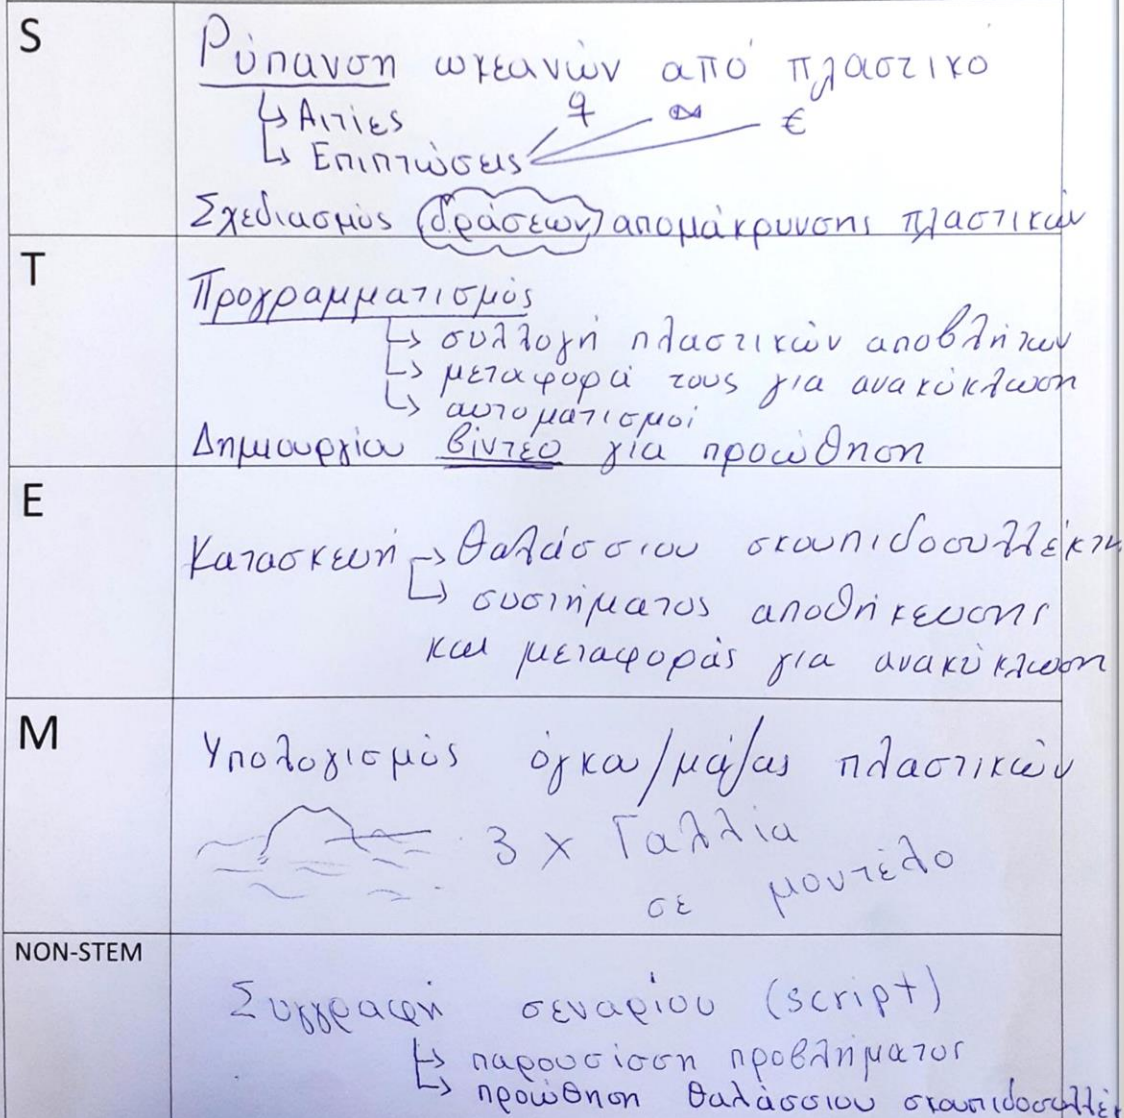 S
Ρύπανση ωκεανών από πλαστικό
↳ Αιτίες
↳ Επιπτώσεις €
Σχεδιασμός δράσεων απομάκρυνσης πλαστικών
T
Προγραμματισμός
↳ συλλογή πλαστικών αποβλήτων
↳ μεταφορά τους για ανακύκλωση
↳ αυτοματισμοί
Δημιουργίου βίντεο για προώθηση
E
Κατασκευή → θαλάσσιου σκουπιδοσυλλέκτη
↳ συστήματος αποθήκευσης
και μεταφοράς για ανακύκλωση
M
Υπολογισμός όγκα/μάζας πλαστικών
3 x Γαλλία
σε μοντέλο
NON-STEM
Συγγραφή σεναρίου (script)
↳ παρουσίαση προβλήματος
↳ προώθηση θαλάσσιου σκουπιδοσυλλέκ